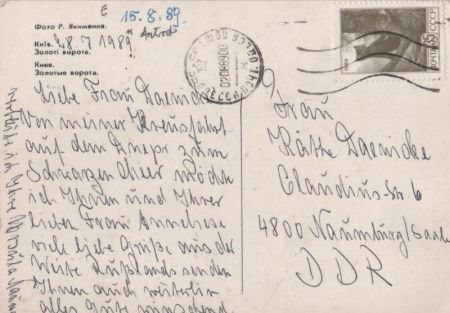 15.8.89
Фото Р. Якименка.
Київ. 28 7 1989
Золоті ворота.
Киев.
Золотые ворота.
Liebe Frau Daenicke
Von meiner Kreuzfahrt
auf dem Dnepr zum
Schwarzen Meer möchte
ich Ihnen und Ihrer
lieben Frau Anneliese
viele liebe Grüße aus der
Weite Rußlands senden
Ihnen auch weiterhin
alles Gute wünschend
ich Ihre
Frau
Käthe Daenicke
Claudius-Str 6
4800 Naumburg/Saale
DDR
ПОЧТА СССР